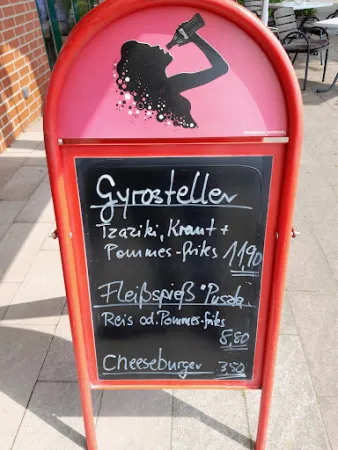 Gyrosteller
Tzaziki, Kraut +
Pommes-frites 11,90
Fleißspieß "Puszta
Reis od. Pommes-frites
8,80
Cheeseburger 3,50